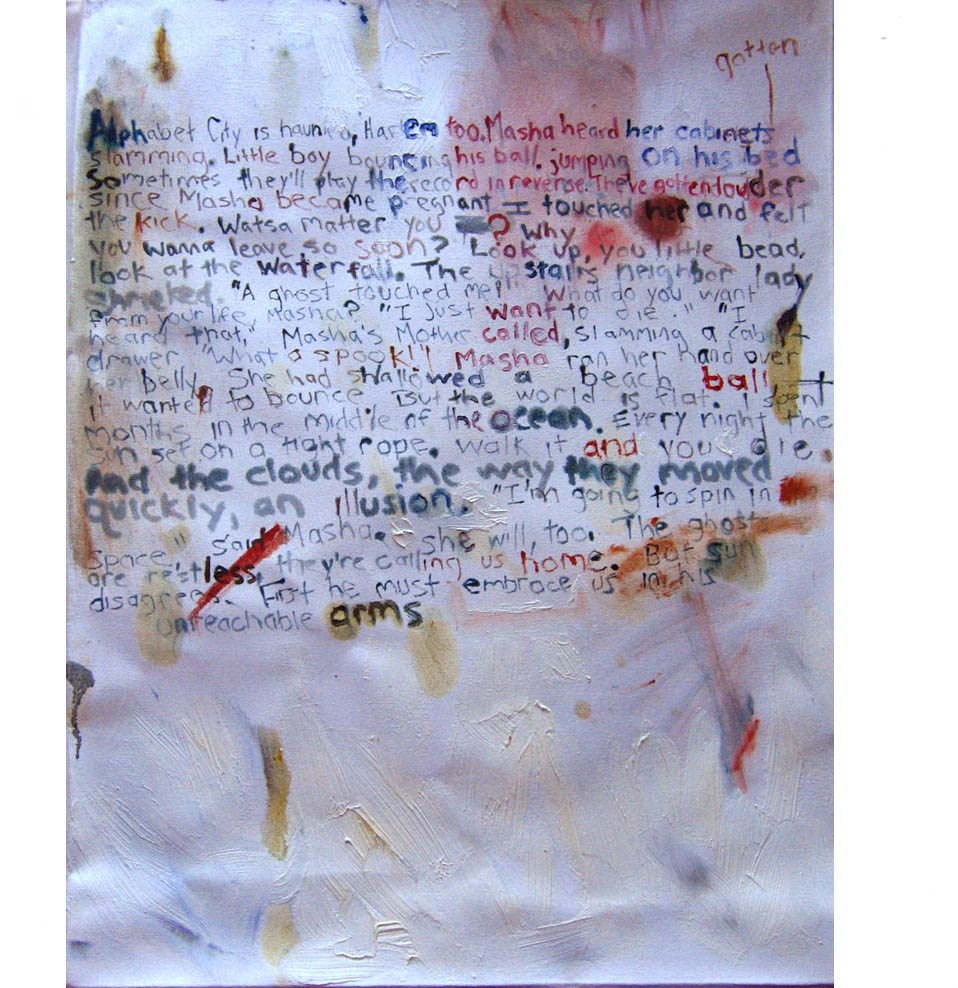 gotten
Alphabet City is haunted, Harlem too. Masha heard her cabinets
slamming. Little boy bouncing his ball. jumping on his bed
Sometimes they'll play the record in reverse. They've gotten louder
since Masha became pregnant I touched her and felt
the kick. Watsa matter you ? Why
you wanna leave so soon? Look up, you little bead,
look at the waterfall. The upstairs neighbor lady
shrieked. "A ghost touched me!" What do you want
from your life, Masha? "I just want to die." "I
heard that," Masha's Mother called, slamming a cabinet
drawer "What a spook!"! Masha ran her hand over
her belly. She had swallowed a beach ball It
it wanted to bounce But the world is flat. I spent
months in the middle of the ocean. Every night the
sun set on a tight rope. Walk it and you die.
And the clouds, the way they moved
quickly, an illusion. "I'm going to spin in
space" said Masha. She will, too. The ghosts
are restless, they're calling us home. But sun
disagrees. First he must embrace us in his
unreachable arms